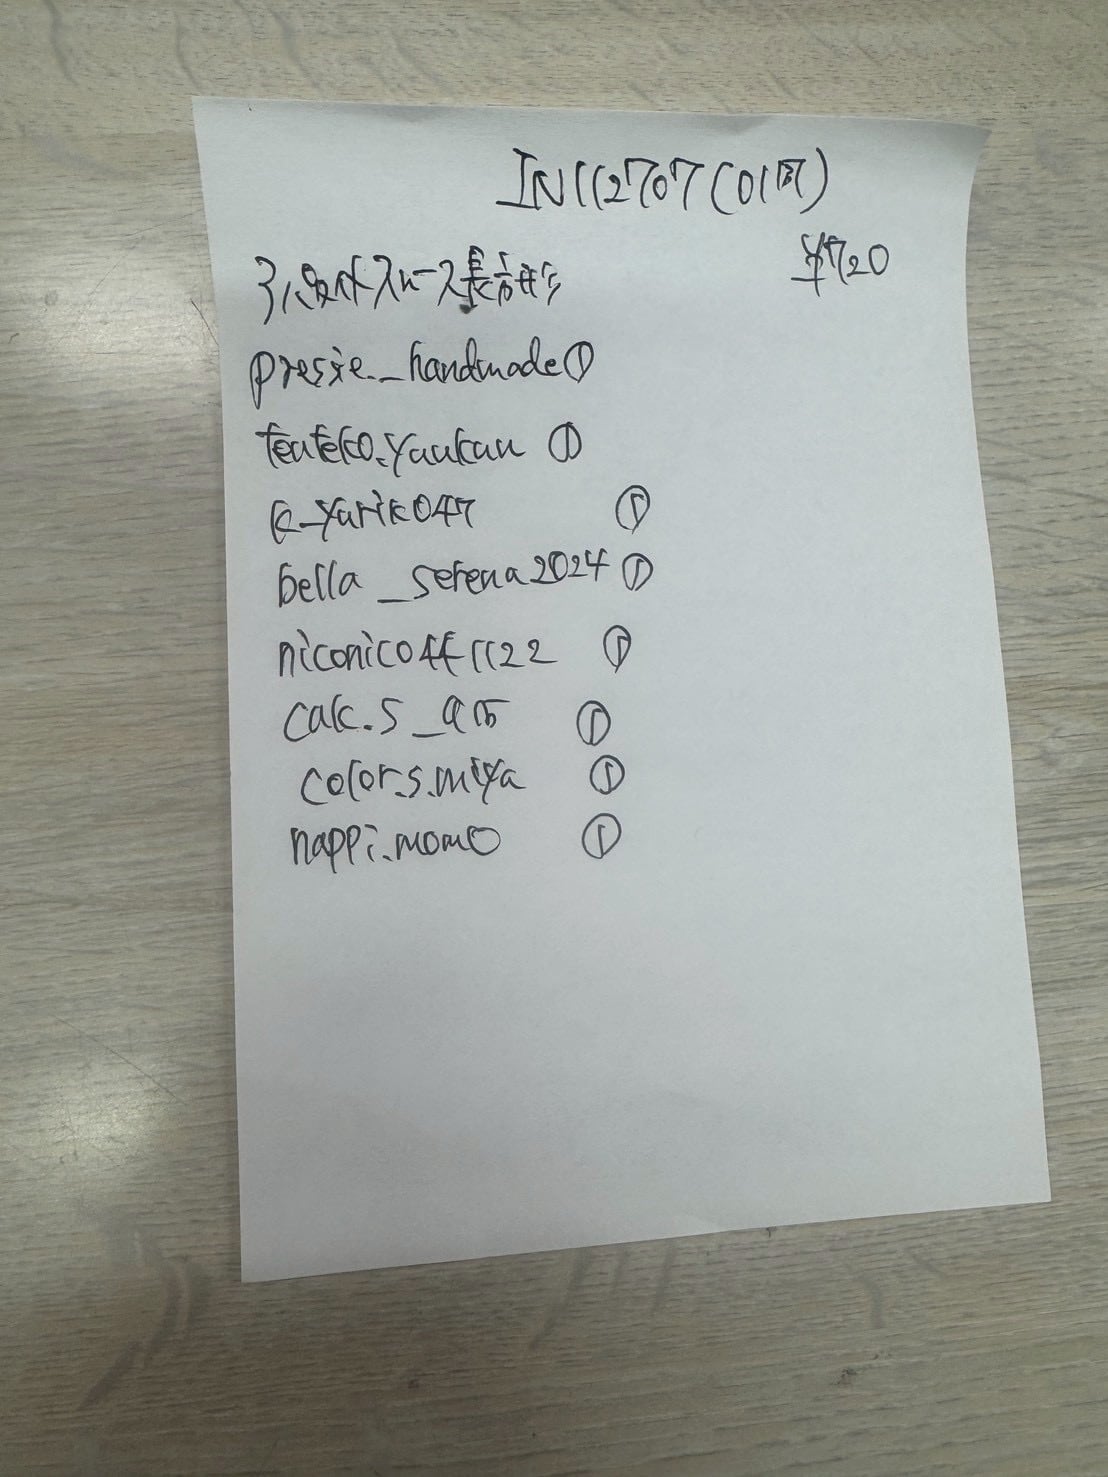 IN112707(01間)
¥720
3段付スペース長方形
presie._handmade①
teuteko.yaukau ①
k_yuriko47 ①
bella_serena2024 ①
niconico441122 ①
calc.5_915 ①
color.s.miya ①
nappi.momo ①